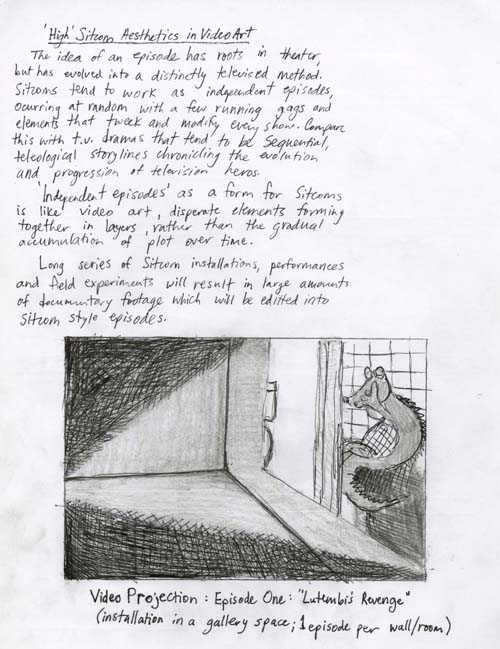 'High' Sitcom Aesthetics in Video Art
The idea of an episode has roots in theater,
but has evolved into a distinctly televised method.
Sitcoms tend to work as independent episodes,
ocurring at random with a few running gags and
elements that tweek and modify every show. Compare
this with t.v. dramas that tend to be sequential,
teleological storylines chronicling the evolution
and progression of television heros.
'Independent episodes' as a form for Sitcoms
is like video art, disperate elements forming
together in layers, rather than the gradual
accumulation of plot over time.
Long series of Sitcom installations, performances
and field experiments will result in large amounts
of documentary footage which will be editted into
Sitcom style episodes.
Video Projection: Episode One: "Lutembi's Revenge"
(installation in a gallery space; 1 episode per wall/room)